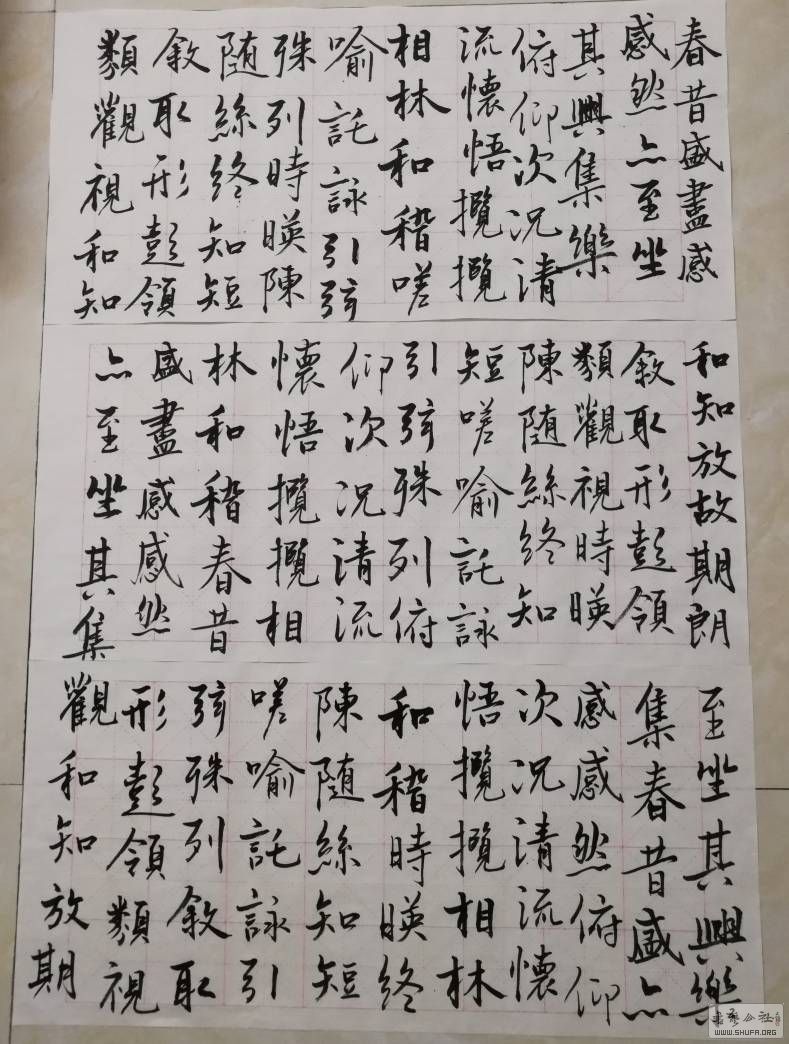 春昔盛盡感
感然亦至坐
其興集樂
俯仰次況清
流懷悟攬攬
相林和稽嗟
喻託詠引弦
殊列時暎陳
随絲終知短
敘取形彭領
類觀視和知
和知放故期朗
敘取形彭領
類觀視時暎
陳随絲終知
短嗟喻託詠
引弦殊列俯
仰次況清流
懷悟攬攬相
林和稽春昔
盛盡感感然
亦至坐其集
至坐其興樂
集春昔盛亦
感感然俯仰
次況清流懷
悟攬攬相林
和稽時暎終
陳随絲知短
嗟喻託詠引
弦殊列敘取
形彭領類視
觀和知放期
WWW.SHUFA.ORG